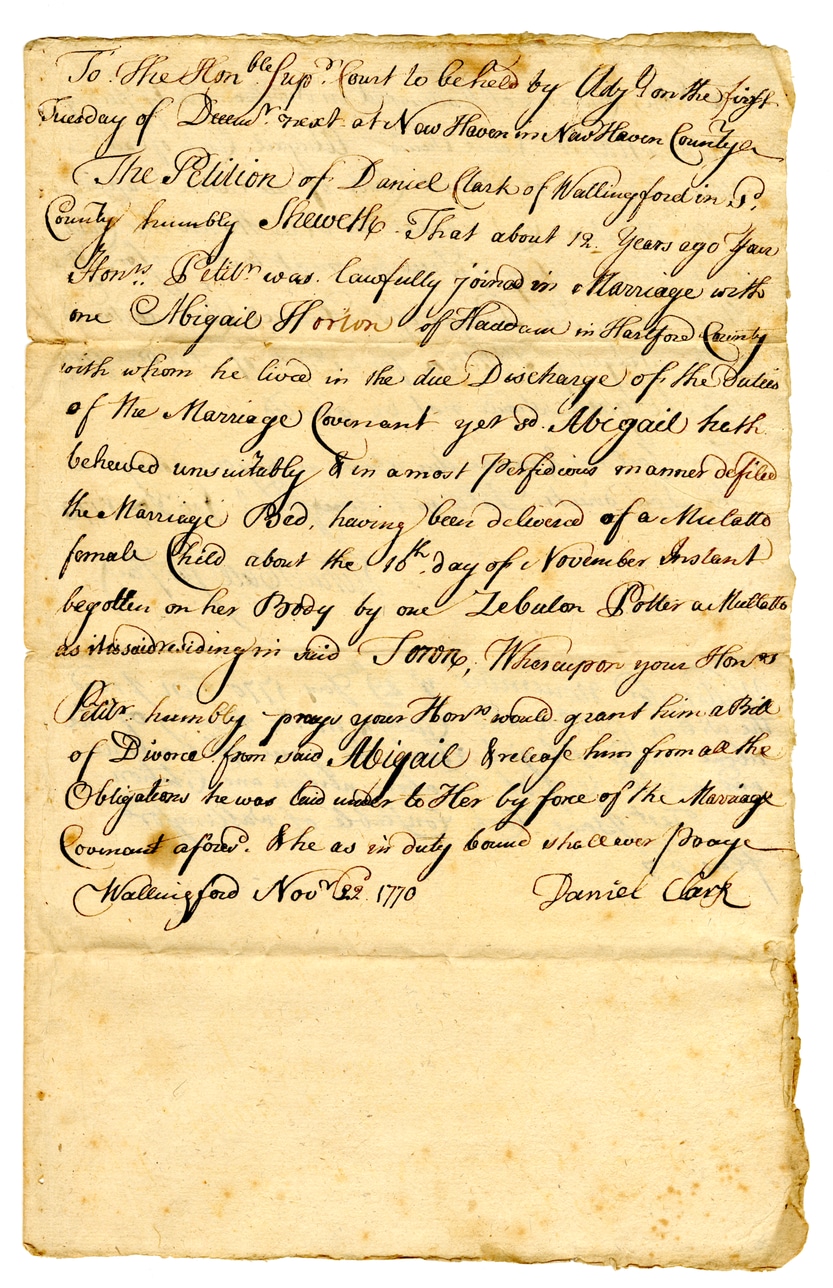 To the Hon.ble Sup.r Court to be held by Adj.t on the first
Tuesday of Decem.r next at New Haven in New Haven County
The Petition of Daniel Clark of Wallingford in S.d
County humbly Sheweth. That about 12 Years ago Your
Hon.rs Petit.r was lawfully joined in Marriage with
one Abigail Horton of Haddam in Hartford County
with whom he lived in the due Discharge of the Duties
of the Marriage Covenant yet sd. Abigail hath
behewed unsuitably & in a most Perfidious manner defiled
the Marriage Bed, having been delivered of a Mulatto
female Child about the 10th day of November Instant
begotten on her Body by one Zebulon Potter a Mullatto
as it is said residing in said Town, Whereupon your Hon.rs
Petit.r humbly prays your Hon.rs would grant him a Bill
of Divorce from said Abigail & release him from all the
Obligations he was laid under to Her by force of the Marriage
Covenant afores.d & he as in duty bound shall ever Praye
Wallingford Nov.r 22.d 1770 Daniel Clark